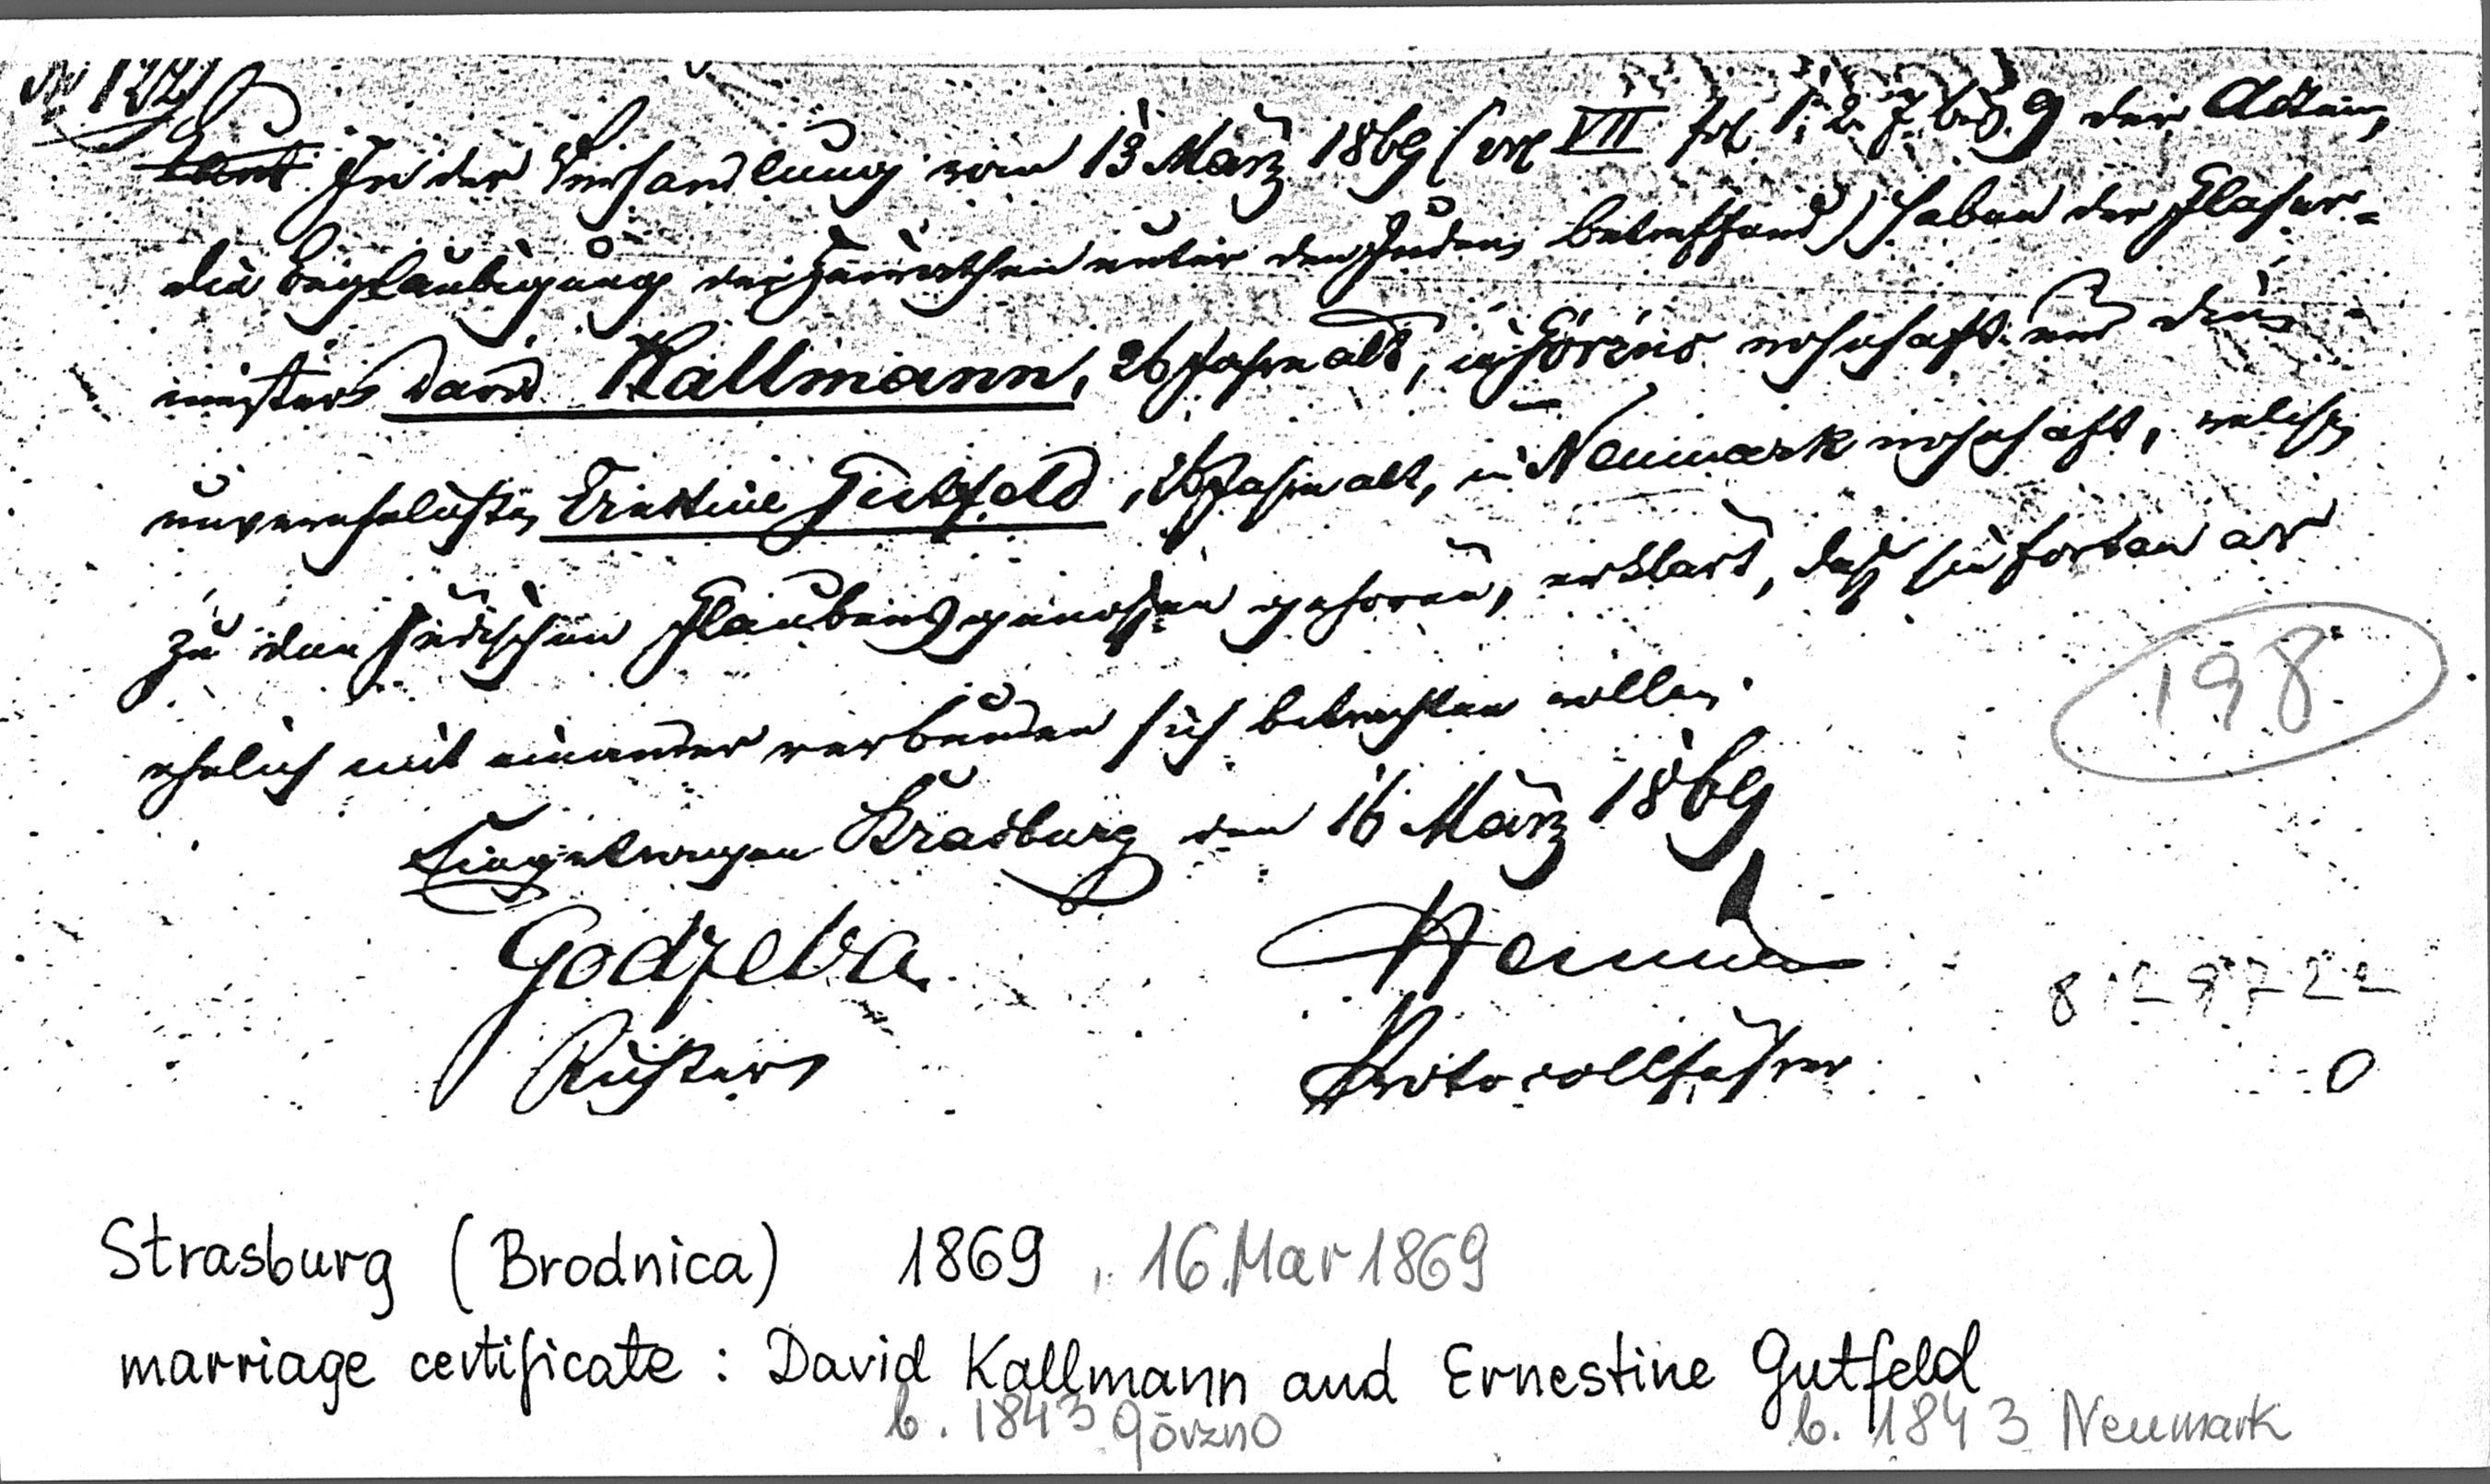 № 122
In der Verhandlung vom 13 März 1869 (vol VII fol 1, 2, 7 bis 9 der Akten,
die Beglaubigung der Heirathen unter den Juden betreffend) haben der Glaser-
meister David Kallmann, 26 Jahre alt, in Görzno wohnhaft und die
unverehelichte Ernestine Gutfeld, 26 Jahre alt, in Neumark wohnhaft, welche
zu den jüdischen Glaubensgenossen gehören, erklärt, daß sie fortan als
ehelich mit einander verbunden sich betrachten wollen.
198
Eingetragen Strasburg den 16 März 1869
8129722
Richter
Protocollführer
0
Strasburg (Brodnica) 1869, 16.Mar 1869
marriage certificate : David Kallmann and Ernestine Gutfeld
b. 1843 Görzno b. 1843 Neumark